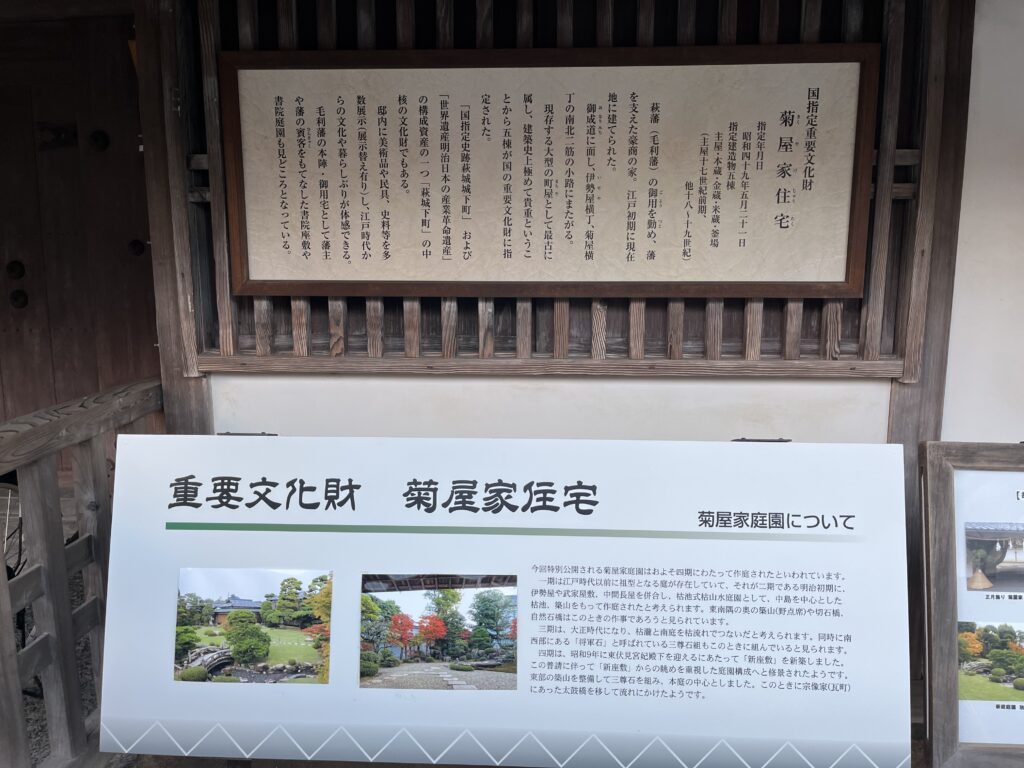 国指定重要文化財
菊屋家住宅
きくやけじゅうたく
指定年月日
昭和四十九年五月二十一日
指定建造物五棟
主屋・本蔵・金蔵・米蔵・釜場
(主屋十七世紀前期、
他十八〜十九世紀)
萩藩(毛利藩)の御用を勤め、藩
を支えた豪商の家。江戸初期に現在
地に建てられた。
御成道に面し、伊勢屋横丁、菊屋横
丁の南北二筋の小路にまたがる。
現存する大型の町屋として最古に
属し、建築史上極めて貴重というこ
とから五棟が国の重要文化財に指
定された。
「国指定史跡萩城城下町」および
「世界遺産明治日本の産業革命遺産」
の構成資産の一つ「萩城下町」の中
核の文化財でもある。
邸内に美術品や民具、史料等を多
数展示(展示替え有り)し、江戸時代か
らの文化や暮らしぶりが体感できる。
毛利藩の本陣・御用宅として藩主
や藩の賓客をもてなした書院座敷や
書院庭園も見どころとなっている。
重要文化財 菊屋家住宅
菊屋家庭園について
今回特別公開される菊屋家庭園はおよそ四期にわたって作庭されたといわれています。
一期は江戸時代以前に祖型となる庭が存在していて、それが二期である明治初期に、
伊勢屋や武家屋敷、中間長屋を併合し、枯池式枯山水庭園として、中島を中心とした
枯池、築山をもって作庭されたと考えられます。東南隅の奥の築山(野点席)や切石橋、
自然石橋はこのときの作事であろうと見られています。
三期は、大正時代になり、枯瀧と南庭を枯流れでつないだと考えられます。同時に南
西部にある「将軍石」と呼ばれている三尊石組もこのときに組んでいると見られます。
四期は、昭和9年に東伏見宮妃殿下を迎えるにあたって「新座敷」を新築しました。
この普請に伴って「新座敷」からの眺めを重視した庭園構成へと修景されたようです。
東部の築山を整備して三尊石を組み、本庭の中心としました。このときに宗像家(瓦町)
にあった太鼓橋を移して流れにかけたようです。